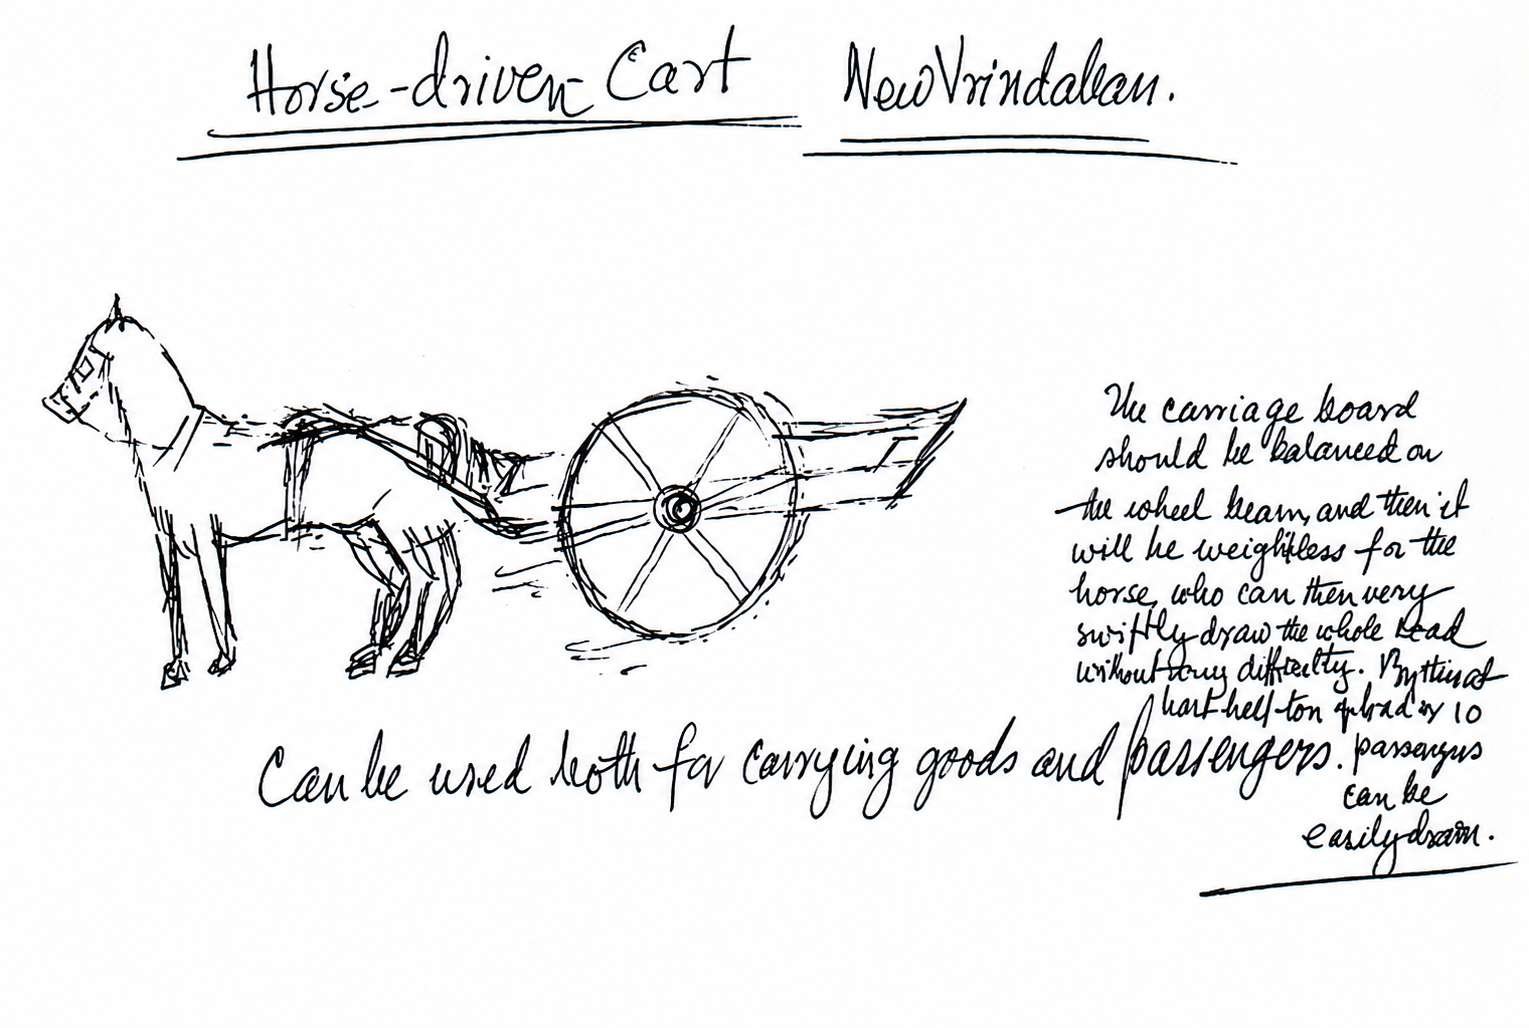 Horse-driven Cart New Vrindaban.
The carriage board
should be balanced on
the wheel beam, and then it
will be weightless for the
horse, who can then very
swiftly draw the whole load
without any difficulty. By this at
least half ton of load or 10
passengers
can be
easily drawn.
Can be used both for carrying goods and passengers.